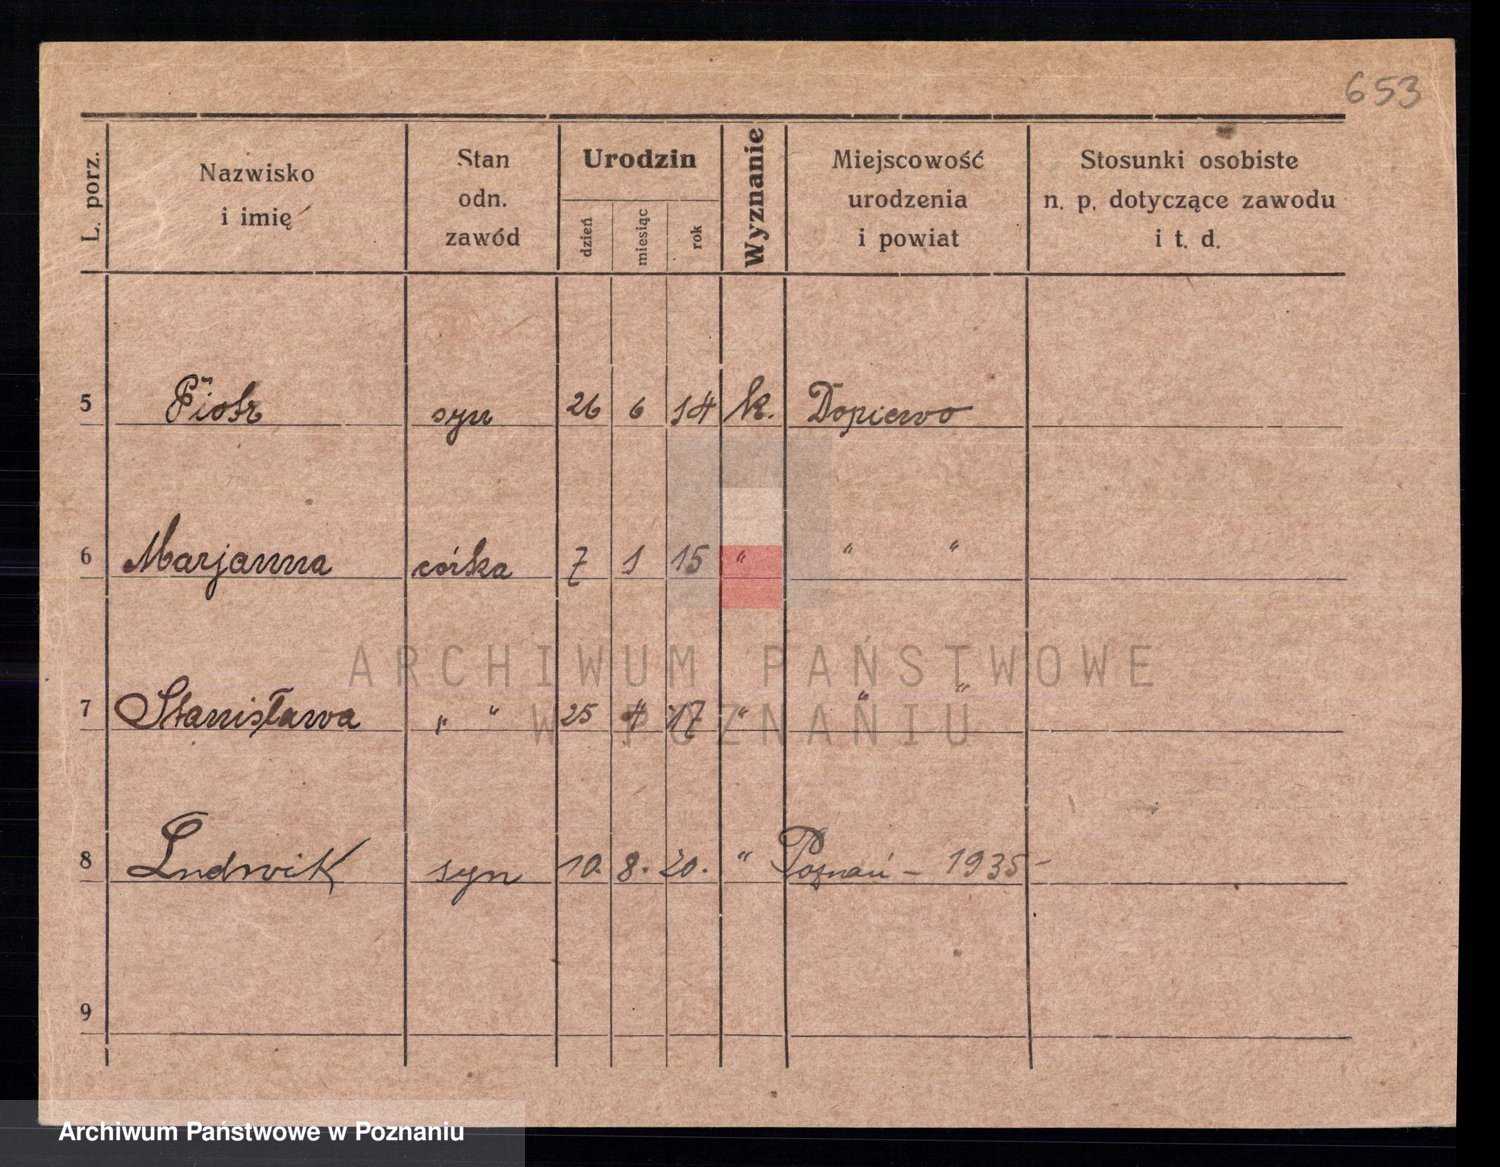 653
L. porz.
Nazwisko
i imię
Stan
odn.
zawód
Urodzin
dzień
miesiąc
rok
Wyznanie
Miejscowość
urodzenia
i powiat
Stosunki osobiste
n. p. dotyczące zawodu
i t. d.
5 Piotr syn 26 6 14 k. Dopiewo
6 Marjanna córka 7 1 15 " " "
7 Stanisława " " 25 4 17 " " "
8 Ludwik syn 10. 8. 20. " Poznań - 1935 -
9
ARCHIWUM PAŃSTWOWE
W POZNANIU
Archiwum Państwowe w Poznaniu